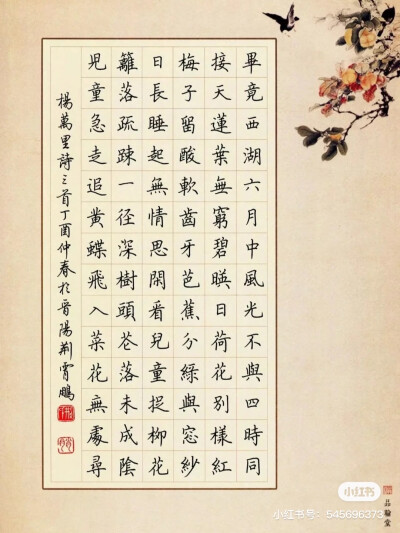 畢竟西湖六月中風光不與四時同
接天蓮葉無窮碧暎日荷花別樣紅
梅子留酸軟齒牙芭蕉分綠與窓紗
日長睡起無情思閑看兒童捉柳花
籬落疏踈一径深樹頭花落未成陰
児童急走追黄蝶飛入菜花無處尋
楊萬里詩三首丁酉仲春於晉陽荆霄鵬
品翰堂
小红书
小红书号：545696373